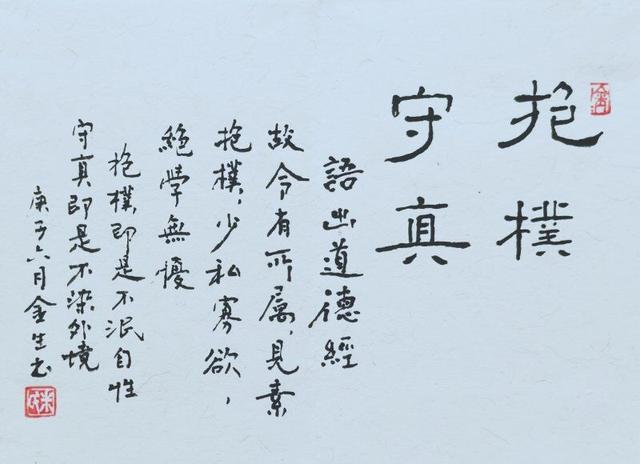 抱樸
守真
語出道德經
故令有所属,見素
抱樸,少私寡欲,
絕學無擾
抱樸即是不泯自性
守真即是不染外境
庚子六月金生书